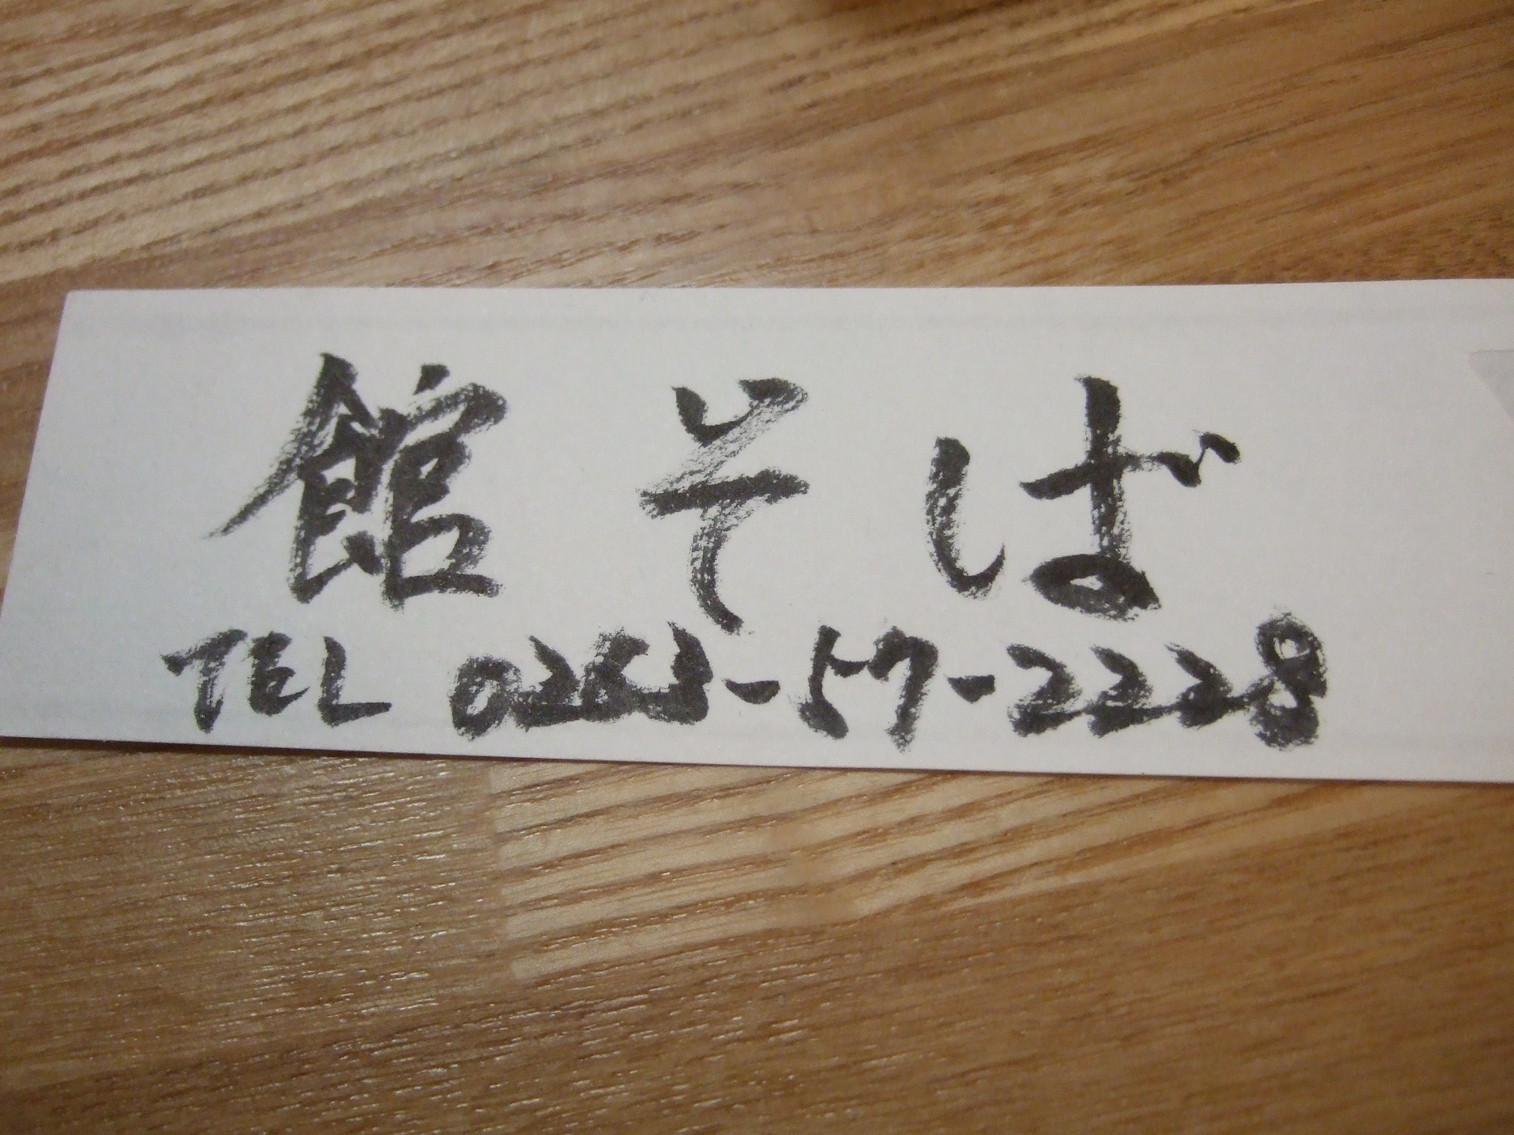 館そば
TEL 0263-57-2228